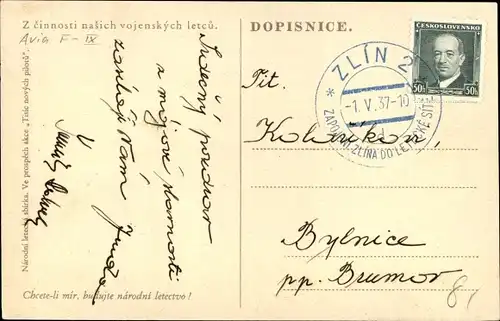 Z činnosti našich vojenských letců.
Avia F-IX
Národní letecká sbírka. Ve prospěch akce „Tisíc nových pilotů“.
Srdečný pozdrav
z májové slavnosti
zasílají Vám
Chcete-li mír, budujte národní letectvo!
DOPISNICE.
ČESKOSLOVENSKO
50h 50h
ZLÍN 2
-1.V.37-10
d
ZAPOJENÍ ZLÍNA DO LETECKÉ SÍTĚ
Pit.
Bylnice
pp. Brumov